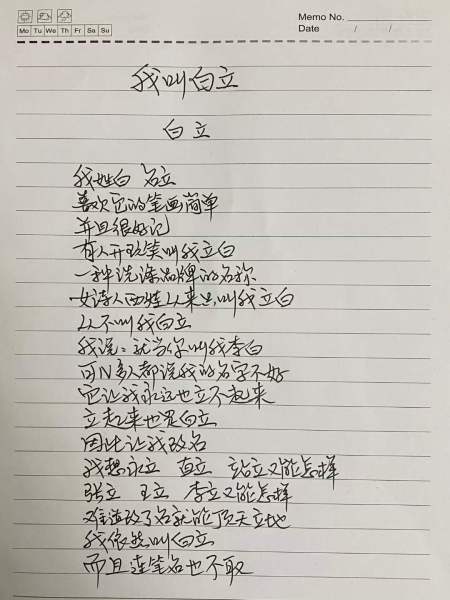 Memo No.
Mo Tu We Th Fr Sa Su
Date / /
我叫白立
白立
我姓白 名立
喜欢它的笔画简单
并且很好记
有人开玩笑叫我立白
一种洗涤品牌的名称
女诗人西娃从来只叫我立白
从不叫我白立
我说：就当你叫我李白
可N多人都说我的名字不好
它让我永远也立不起来
立起来也是白立
因此让我改名
我想永立 直立 站立又能怎样
张立 王立 李立又能怎样
难道改了名就能顶天立地
我依然叫白立
而且连笔名也不取